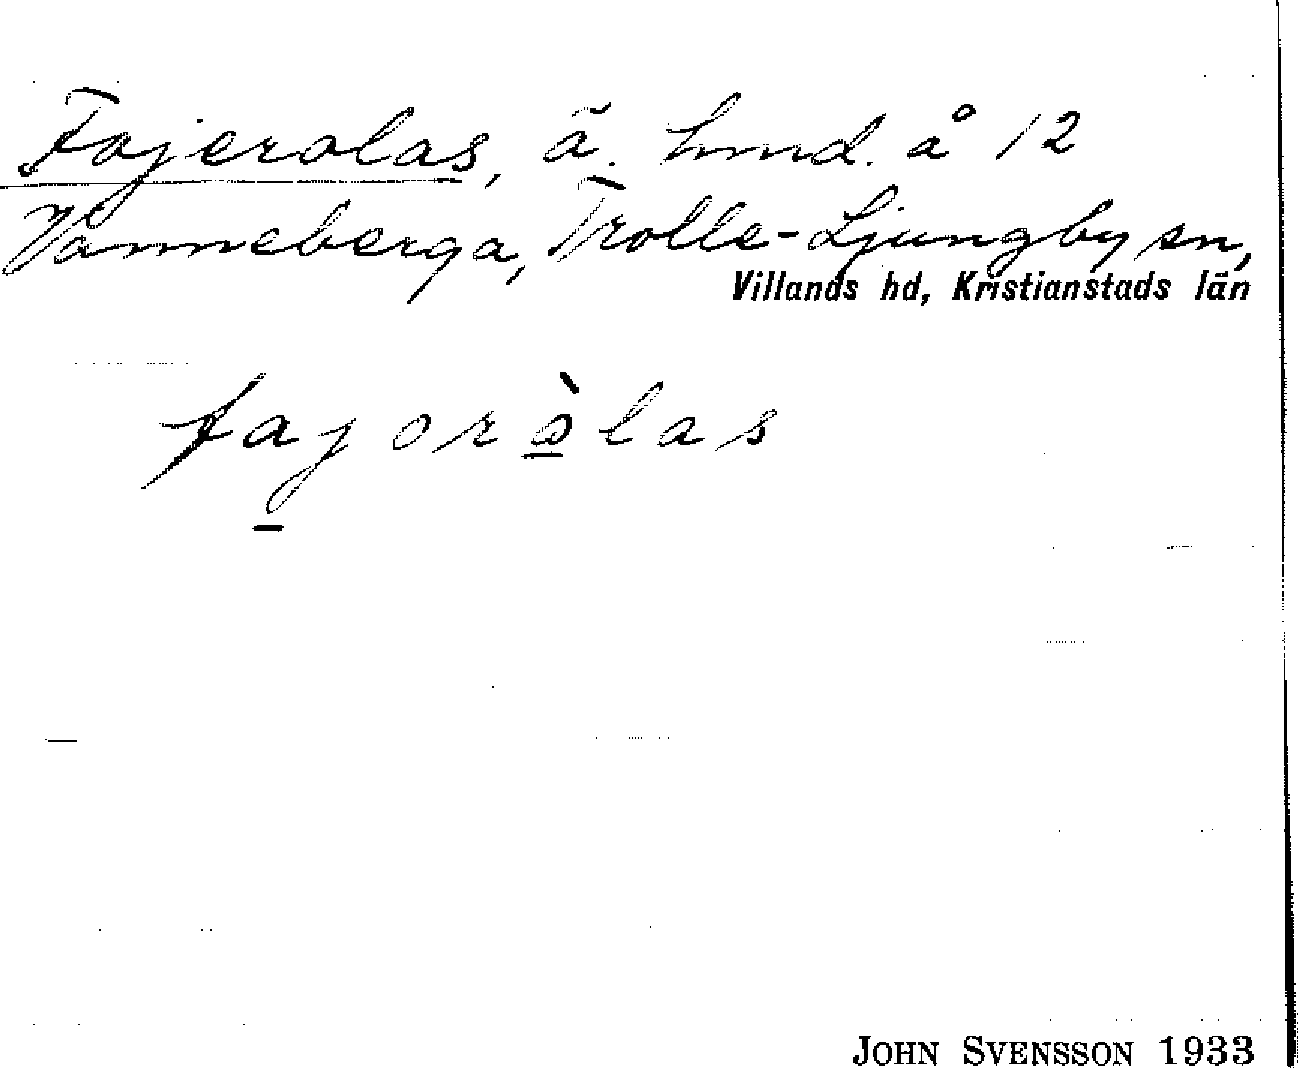 Fajerolas, ä. hmd. å 12
Vanneberga, Trolle-Ljungby sn,
Villands hd, Kristianstads län
fajoròlas
JOHN SVENSSON 1933